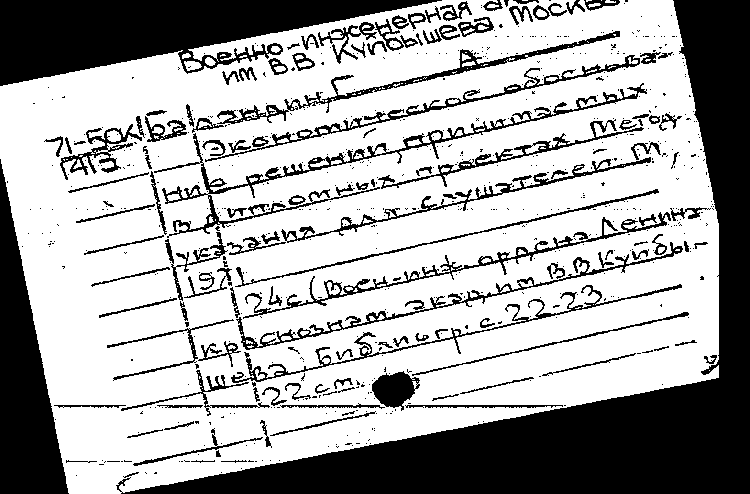 Военно-инженерная
им. В.В. Куйбышева. Москва.
71-50К Баландин, Г А
1413 Экономическое обоснова-
ние решений, принимаемых
в дипломных проектах. Метод.
указания для слушателей. М.,
1971.
24с. (Воен.-инж. ордена Ленина
краснознам. акад. им В.В. Куйбы-
шева) Библиогр. с. 22-23
22 см.